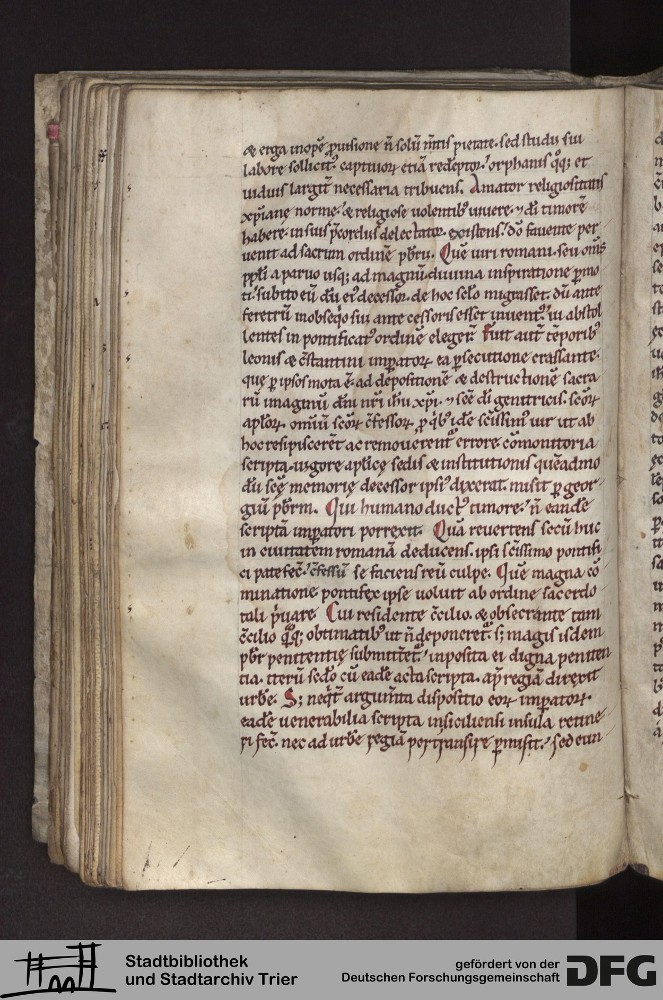 & erga inopẽ ꝓuisione ñ solũ m̃tis pietate. sed studii sui
labore sollicit᷒. captiuoꝝ etiã redẽptor. orphanis qͦꝫ; et
uiduis largit̃ necessaria tribuens. Amator religiositatis
xp̃iane norme. & religiose uolentib᷒ uiuere. ⁊ dĩ timorẽ
habere. in suis p̃cordiis delectatur existens. dõ fauente per
uenit ad sacrum ordinẽ pb̃ru. Quẽ uiri romani. seu om̃s
pp̃li a paruo usq; ad magnũ. diuina inspiratione ꝑmo
ti. subito eũ dũ ei᷒ decessor de hoc sc̃lo migrasset. dũ ante
feretrũ in obseq̃io sui ante cessoris esset inuent᷒. ui abstol
lentes in pontificat᷒ ordinẽ eleger̃. Fuit aut̃ tẽporib᷒
leonis & c̃stantini imp̃atoꝝ ea ꝑsecutione crassante.
quę ꝑ ipsos mota ẽ. ad depositionẽ & destructionẽ sacra
rũ imaginũ dñi nr̃i ih̃u xp̃i. ⁊ sc̃ę dĩ genitricis. sc̃oꝝ
aplõꝝ. omiũ sc̃oꝝ c̃fessoꝝ. ꝓ q̃b᷒ idẽ sc̃issim᷒ uir ut ab
hoc resipisceret̃ ac remouerent᷒ errore. cõmonitoria
scripta. uigore apl̃icę sedis & institutionis quẽadmo
dũ sc̃ę memorię decessor ipsi᷒ dixerat. misit ꝑ geor
giũ pb̃rm. Qui humano duct᷒ timore. ñ eandẽ
scriptã imp̃atori porrexit. Quã reuertens secũ huc
in ciuitatem romanã deducens. ipsi sc̃issimo pontifi
ci patefec̃. c̃fessũ se faciens reũ culpe. Quẽ magna cõ
minatione pontifex ipse uoluit ab ordine sacerdo
tali p̃uare. Cui residente c̃cilio. & obsecrante tam
c̃cilio qͦꝫ; obtimatib᷒ ut ñ deponeret᷒. s; magis isdem
pb̃r penitentię submittet᷒. inposita ei digna peniten
tia. iterũ sed̃o cũ eadẽ acta scripta. ap̃ regiã direxit
urbẽ. S; neq̃t̃ arguṁta dispositio eoꝝ imp̃atoꝝ.
eadẽ uenerabilia scripta in siciliensi insula retine
ri fec̃. nec ad urbẽ regiã pertransire ꝑmisit. sed eun
Stadtbibliothek
und Stadtarchiv Trier
gefördert von der
Deutschen Forschungsgemeinschaft
DFG